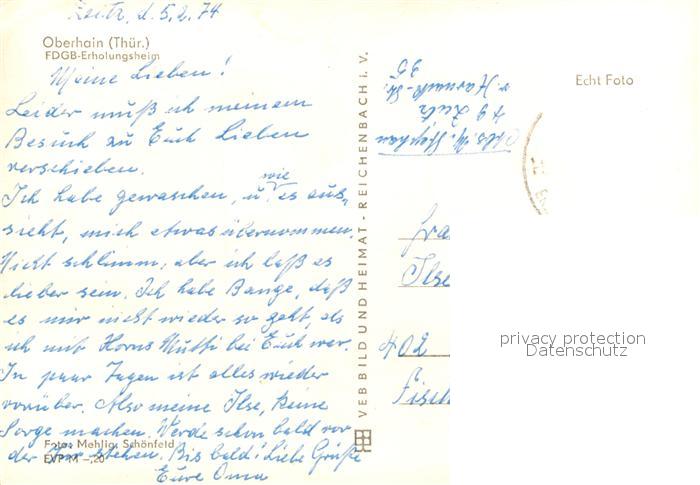 Zeitz, d. 5.2.74
Oberhain (Thür.)
FDGB-Erholungsheim
Meine Lieben!
Leider muß ich meinem
Besuch zu Euch Lieben
verschieben.
Ich habe gewaschen, u. wie es aus-
sieht, mich etwas übernommen.
Nicht schlimm, aber ich laß es
lieber sein. Ich habe Bange, daß
es mir nicht wieder so geht, als
ich mit Horns Mutti bei Euch war.
In paar Tagen ist alles wieder
vorüber. Also meine Ilse, keine
Sorge machen. Werde schon bald vor
der Tür stehen. Bis bald! Liebe Grüße
Eure Oma
Foto: Mehlig, Schönfeld
EVP M -,20
VEB BILD UND HEIMAT - REICHENBACH i. V.
Abs. M. Stephan
49 Zeitz
35
Echt Foto
Fra
Ilse
402
Fisch
privacy protection
Datenschutz